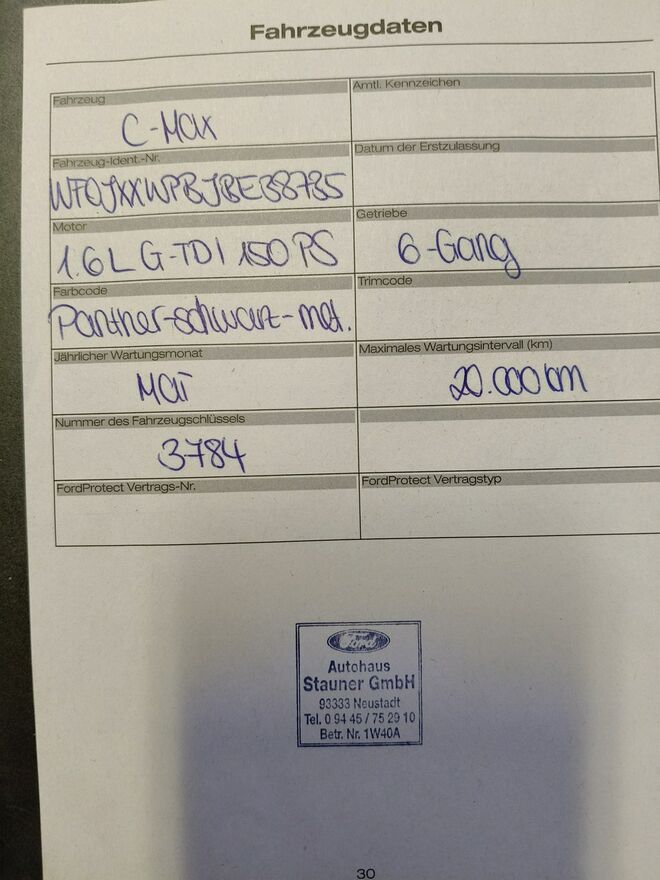 Fahrzeugdaten
Fahrzeug
C-Max
Amtl. Kennzeichen
Fahrzeug-Ident.-Nr.
WF0JXXWPBJBEB8785
Datum der Erstzulassung
Motor
1.6L G-TDI 150PS
Getriebe
6-Gang
Farbcode
Panther-schwarz-met.
Trimcode
Jährlicher Wartungsmonat
Mai
Maximales Wartungsintervall (km)
20.000km
Nummer des Fahrzeugschlüssels
3784
FordProtect Vertrags-Nr.
FordProtect Vertragstyp
Ford
Autohaus
Stauner GmbH
93333 Neustadt
Tel. 0 94 45 / 75 29 10
Betr. Nr. 1W40A
30